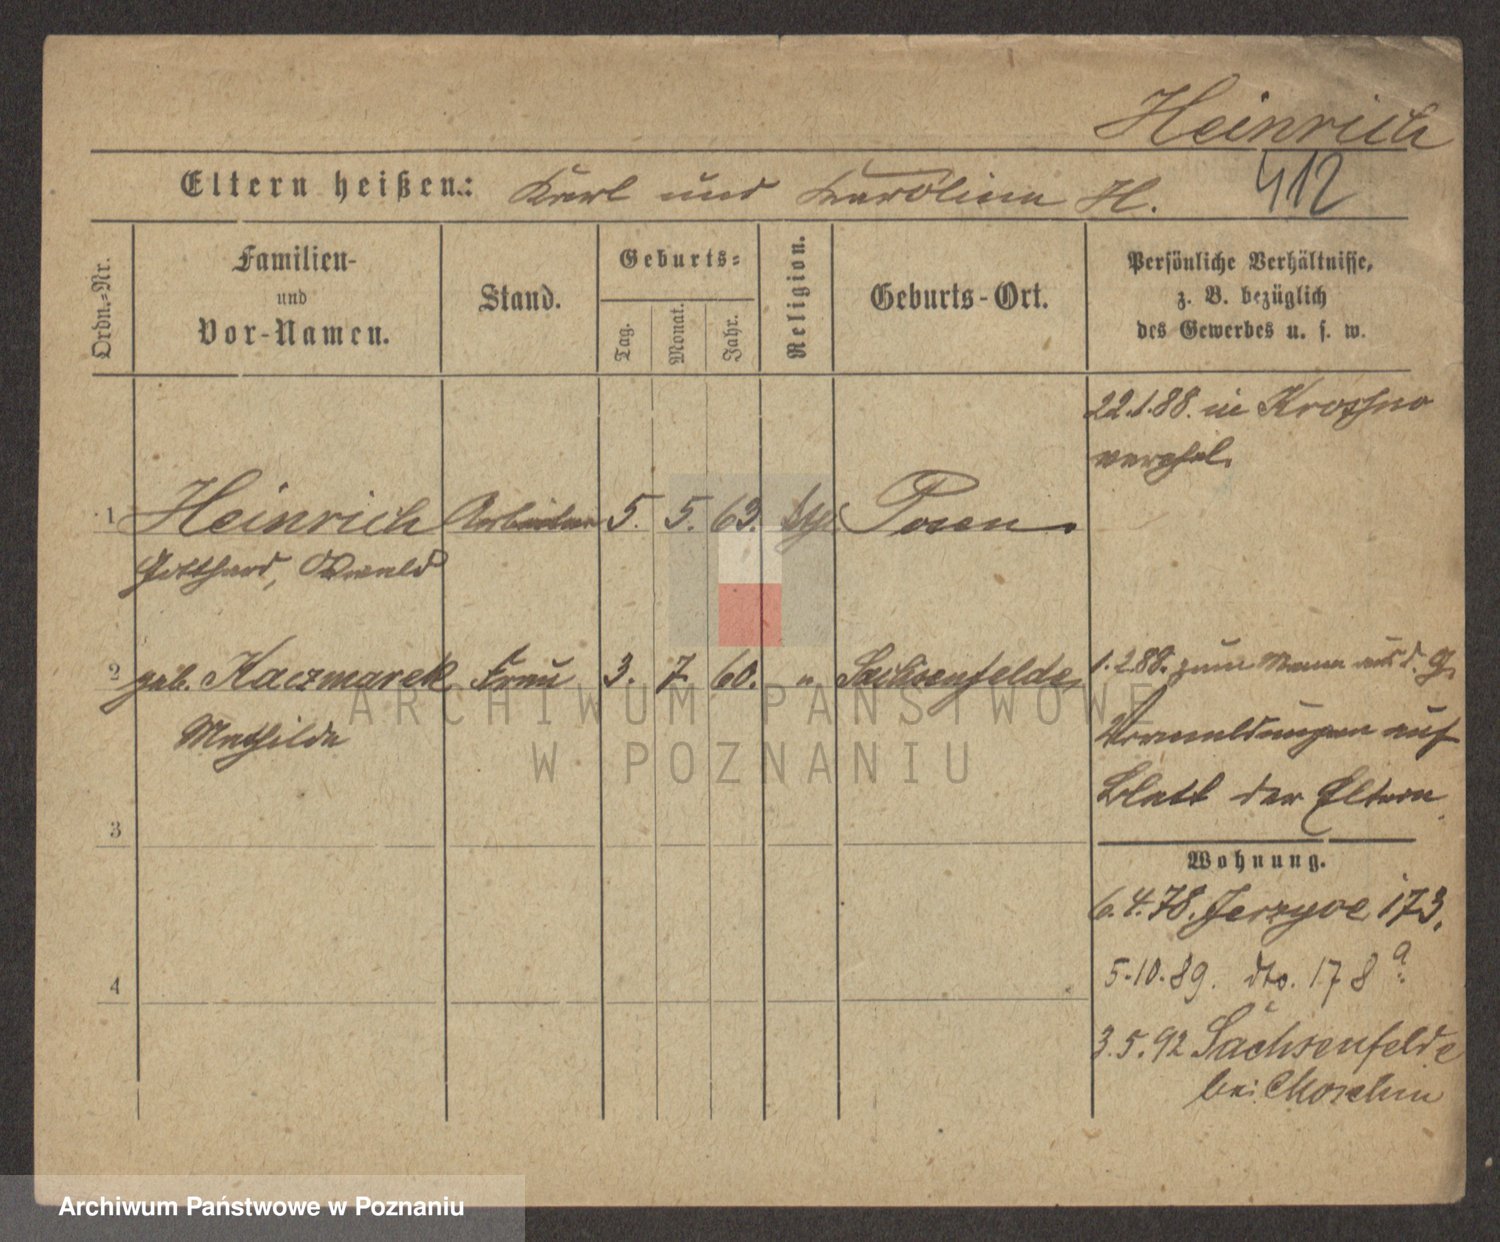 Heinrich
412
Eltern heißen: Karl und Karoline H.
Ordn.-Nr.
Familien-
und
Vor-Namen.
Stand.
Geburts-
Tag.
Monat.
Jahr.
Religion.
Geburts-Ort.
Persönliche Verhältnisse,
z. B. bezüglich
des Gewerbes u. s. w.
22.1.88. in Krosno
verehel.
1 Heinrich Arbeiter 5. 5. 63. Posen.
Gotthard, Oswald
2 geb. Kaczmarek Frau 3. 7. 60. " Sachsenfelde, 1.2.88. zum Mann aus d. G.
Mathilde
Vormeldungen auf
Blatt der Eltern.
3
Wohnung.
6.4.78. Jerzyce 173.
4
5.10.89. dto. 178 a.
3.5.92 Sachsenfelde
bei Moschin
ARCHIWUM PAŃSTWOWE
W POZNANIU
Archiwum Państwowe w Poznaniu